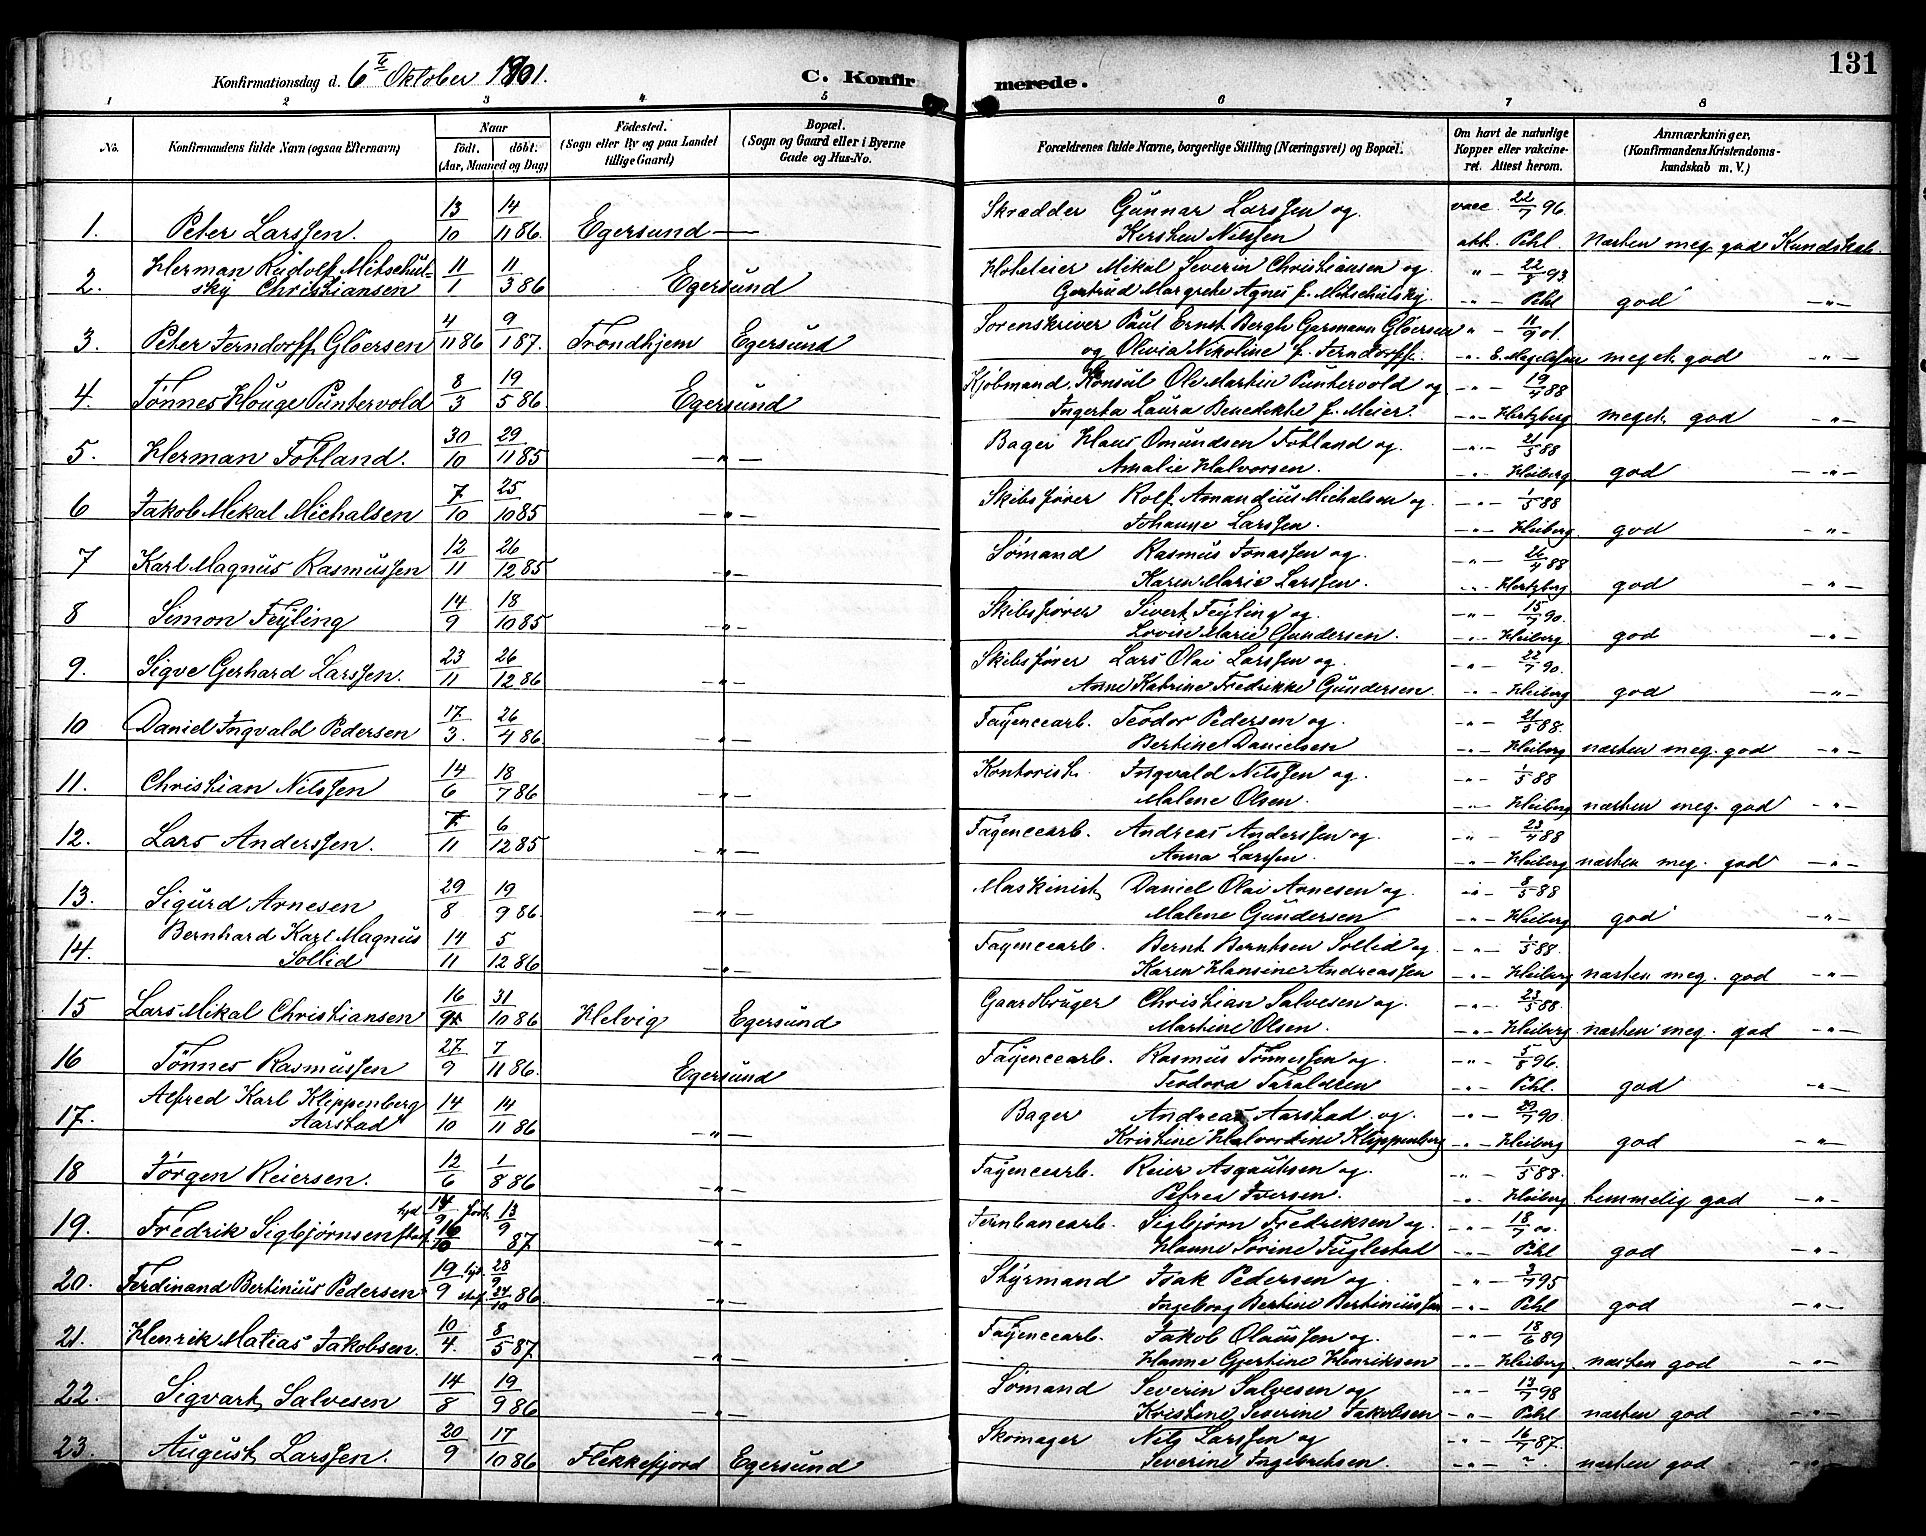 131
Konfirmationsdag d. 6te Oktober 1901. C. Konfirmerede.
1 2 3 4 5 6 7 8
No. Konfirmandens fulde Navn (ogsaa Efternavn) Naar født. døbt. (Aar, Maaned og Dag) Fødested. (Sogn eller By og paa Landet tillige Gaard) Bopæl. (Sogn og Gaard eller i Byerne Gade og Hus-No. Forældrenes fulde Navne, borgerlige Stilling (Næringsvei) og Bopæl. Om havt de naturlige Kopper eller vakcineret. Attest herom. Anmærkninger. (Konfirmandens Kristendomskundskab m. V.)
1. Peter Larssen. 13/10 14/11 86. Egersund — Skrædder Gunnar Larssen og Kirsten Nilssen vacc. 22/7 96. att. Pihl. Næsten meg. god Kundskab.
2. Herman Rudolf Mitschulsky Christiansen 11/1 11/3 86 Egersund Hoteleier Mikal Severin Christiansen og Gertrud Margrete Agnes f. Mitschulsky. " 22/8 93. Pihl god "
3. Peter Jerndorff Gløersen 4/11 86 9/1 87. Trondhjem Egersund Sorenskriver Paul Ernst Bergh Garmann Gløersen og Olivia Nikoline f. Jerndorff. " 11/9 01. meget god "
4. Tønnes Houge Puntervold 8/3 19/5 86. Egersund Kjøbmand, Konsul Ole Martin Puntervold og Ingerta Laura Benedikte f. Meier. " 19/4 88 Hertzberg meget god "
5. Herman Fotland. 30/10 29/11 85 " Bager Hans Omundsen Fotland og Amalie Halvorsen. " 21/5 88 Heiberg god "
6 Jakob Mikal Michalsen 7/10 25/10 85 " Skibsfører Rolf Amandius Michalsen og Johanne Larssen. " 1/5 88 Heiberg god "
7 Karl Magnus Rasmussen 12/11 26/12 85 " Sømand Rasmus Jonassen og Karen Marie Larssen. " 26/4 88 Hertzberg god "
8 Simon Feyling 14/9 18/10 85 " Skibsfører Sivert Feyling og Lovise Marie Gundersen. " 15/7 90. Heiberg god "
9. Sigve Gerhard Larssen. 23/11 26/12 86 " Skibsfører Lars Olai Larssen og Anne Katrine Fredrikke Gundersen. " 22/7 90. Heiberg god "
10 Daniel Ingvald Pedersen 17/3. 26/4 86. " Fayencearb. Teodor Pedersen og Bertine Danielsen " 21/5 88. Heiberg næsten meg. god "
11. Christian Nilssen 14/6 18/7 86 " Kontorist. Ingvald Nilssen og Malene Olsen. " 1/5 88 Heiberg næsten meg. god "
12. Lars Anderssen. 7/11 6/12 85 " Fayencearb. Andreas Anderssen og Anna Larssen. " 23/4 88 Heiberg næsten meg. god "
13. Sigurd Arnesen 29/8 19/9 86 " Maskinist, Daniel Olai Arnesen og Malene Gundersen " 8/5 88 Heiberg god "
14. Bernhard Karl Magnus Sollid 14/11 5/12 86 " Fayencearb. Bernt Berntsen Sollid og Karen Hansine Andreassen " 1/5 88. Heiberg næsten meg. god "
15 Lars Mikal Christiansen 16/9 31/10 86 Helvig Egersund Gaardbruger Christian Salvesen og Martine Olsen. " 23/5 88. Heiberg næsten meg. god "
16 Tønnes Rasmussen 27/9 7/11 86. Egersund Fayencearb. Rasmus Tønnessen og Teodora Taraldsen " 5/8 96. Pihl. god "
17. Alfred Karl Klippenberg Aarstad 14/10 14/11 86 " Bager Andreas Aarstad og Kristine Halvordine Klippenberg " 29/7 90. Heiberg god "
18 Jørgen Reiersen. 12/6 1/8 86 " Fayencearb. Reier Asgautsen og Petrea Iversen. " 1/5 88. Heiberg temmelig god "
19. Fredrik Sigbjørnsen 14/9 16/10 13/9 87. " Jernbanearb. Sigbjørn Fredriksen og Hanne Sørine Fuglestad " 18/7 00. Pihl god "
20. Ferdinand Bertinius Pedersen 19/9 28/9 24/10 86. " Styrmand Isak Pedersen og Ingeborg Bertine Bertiniussen " 3/7 95 Pihl god "
21. Henrik Matias Jakobsen. 10/4. 8/5 87. " Fayencearb. Jakob Olaussen og Hanne Gjertine Henriksen " 18/6 89 Heiberg næsten god "
22. Sigvart Salvesen 14/8 19/9 86 " Sømand Severin Salvesen og Kristine Severine Jakobsen " 13/7 98 Pihl næsten god "
23. August Larssen. 20/9 17/10 86 Flekkefjord Egersund Skomager Nils Larssen og Severine Ingebretsen. " 16/7 87. " næsten god "